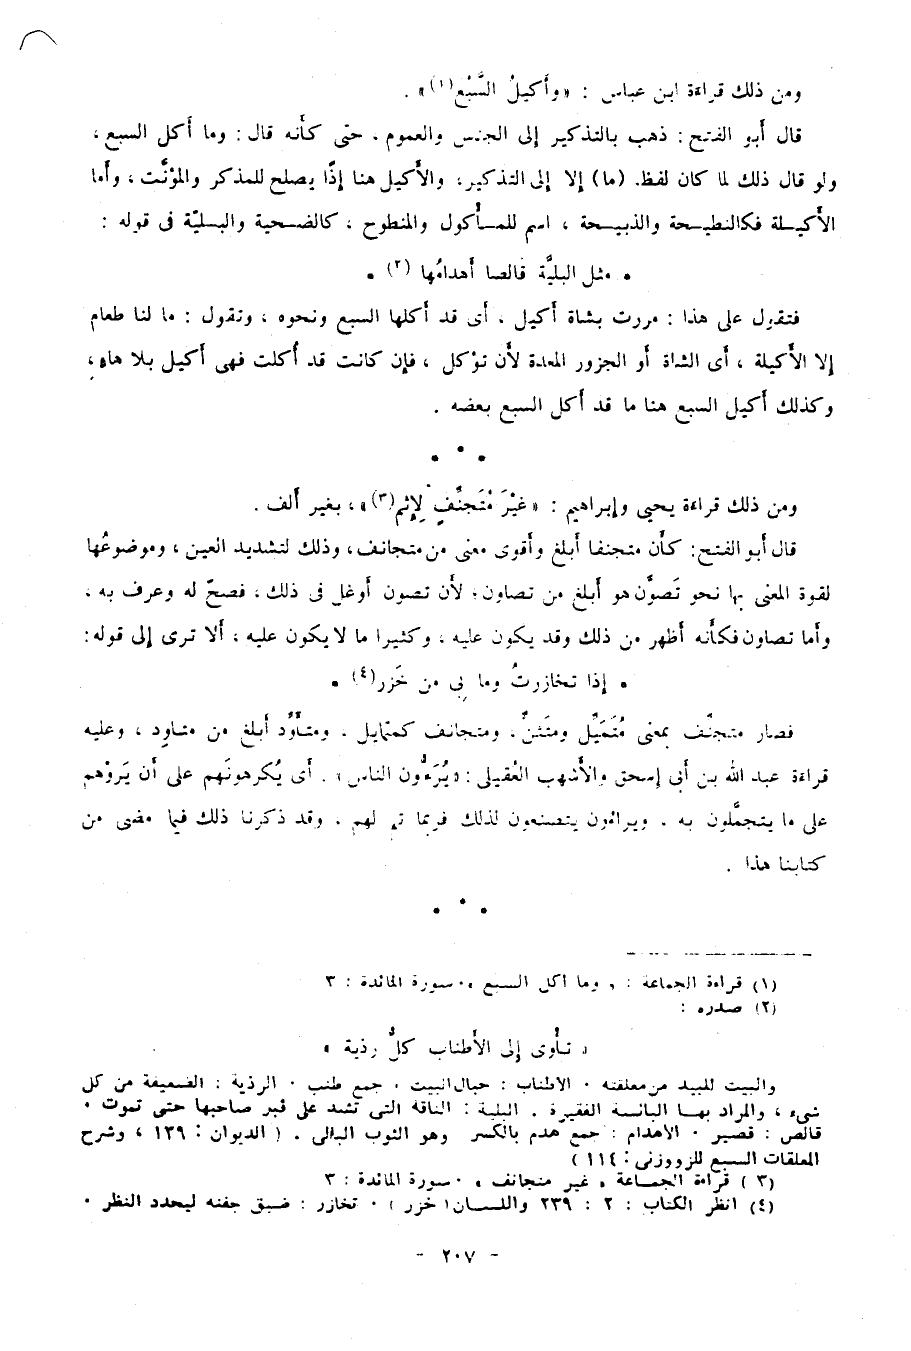 ومن ذلك قراءة ابن عباس : «وأَكيلُ السَّبُع(١)» .
قال أبو الفتح : ذهب بالتذكير إلى الجنس والعموم . حتى كأَنه قال : وما أكل السبع ،
ولو قال ذلك لما كان لفظ. (ما) إلا إلى التذكير ، والأَكيل هنا إِذًا يصلح للمذكر والمؤنَّت ، وأَما
الأَكيلة فكالنطيحة والذبيحة ، اسم للمأْكول والمنطوح ، كالضحية والبليّة فى قوله :
• مثل البليَّة قالصا أَهدامُها (٢) •
فتقول على هذا : مررت بشاة أكيل . أى قد أكلها السبع ونحوه ، وتقول : ما لنا طعام
إلا الأَكيلة ، أى الشاة أو الجزور المعدة لأَن تؤكل ، فإن كانت قد أُكلت فهى أكيل بلا هاءٍ ،
وكذلك أكيل السبع هنا ما قد أكل السبع بعضه .
• • •
ومن ذلك قراءة يحيى وإبراهيم : «غَيْرَ مُتَجنِّفٍ لِإِثم(٣)» ، بغير ألف .
قال أبو الفتح: كأَن متجنفا أبلغ وأقوى معنى من متجانف ، وذلك لتشديد العين ، وموضوعُها
لقوة المعنى بها نحو تَصَوَّن هو أبلغ من تصاون ؛ لأَن تصون أوغل فى ذلك ، فصحّ له وعرف به ،
وأما تصاون فكأَنه أظهر من ذلك وقد يكون عليه ، وكثيرا ما لا يكون عليه ، ألا ترى إلى قوله :
• إذا تخازرتُ وما بى من خَزر(٤) •
فصار متجنِّف بمعنى مُتَمَيِّل ومتَثنٍّ . ومتجانف كمتمايل . ومتأَوِّد أبلغ من متاوِد ، وعليه
قراءة عبد الله بن أبى إسحق والأَشهب العُقيلى : «يُرَءُّون الناس» . أى يُكرهونَهم على أن يَروْهم
على ما يتجمَّلون به . ويراءُون يتصنعون لذلك فربما تم لهم . وقد ذكرنا ذلك فيما مضى من
كتابنا هذا .
• • •
(١) قراءة الجماعة : « وما أكل السبع » ، سورة المائدة : ٣
(٢) صدره :
« تأْوى إلى الأَطناب كلُّ رذية »
والبيت للبيد من معلقته . الاطناب : حبال البيت ، جمع طنب . الرذية : الضعيفة من كل
شىء ، والمراد بها البائسة الفقيرة . البلية : الناقة التى تشد على قبر صاحبها حتى تموت .
قالص : قصير . الاهدام : جمع هدم بالكسر وهو الثوب البالى . ( الديوان : ١٣٩ ، وشرح
المعلقات السبع للزوزنى : ١١٤)
(٣) قراءة الجماعة « غير متجانف » . سورة المائدة : ٣
(٤) انظر الكتاب : ٢ : ٢٣٩ واللسان ( خزر ) . تخازر : ضيق جفنه ليحدد النظر .
- ٢٠٧ -